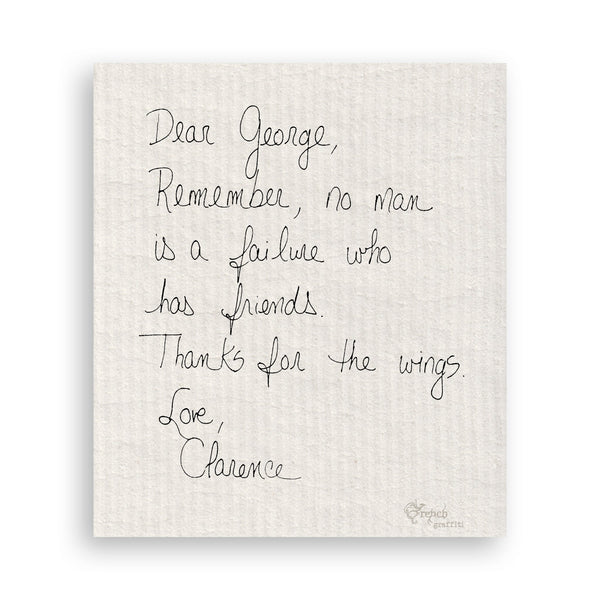 Dear George,
Remember, no man
is a failure who
has friends.
Thanks for the wings.
Love,
Clarence
French
graffiti